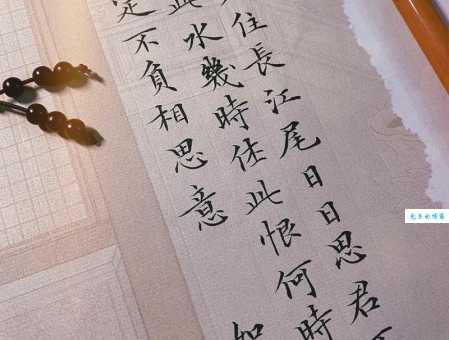 住長江尾日日思君
此水幾時休此恨何時
定不負相思意 如
的博客